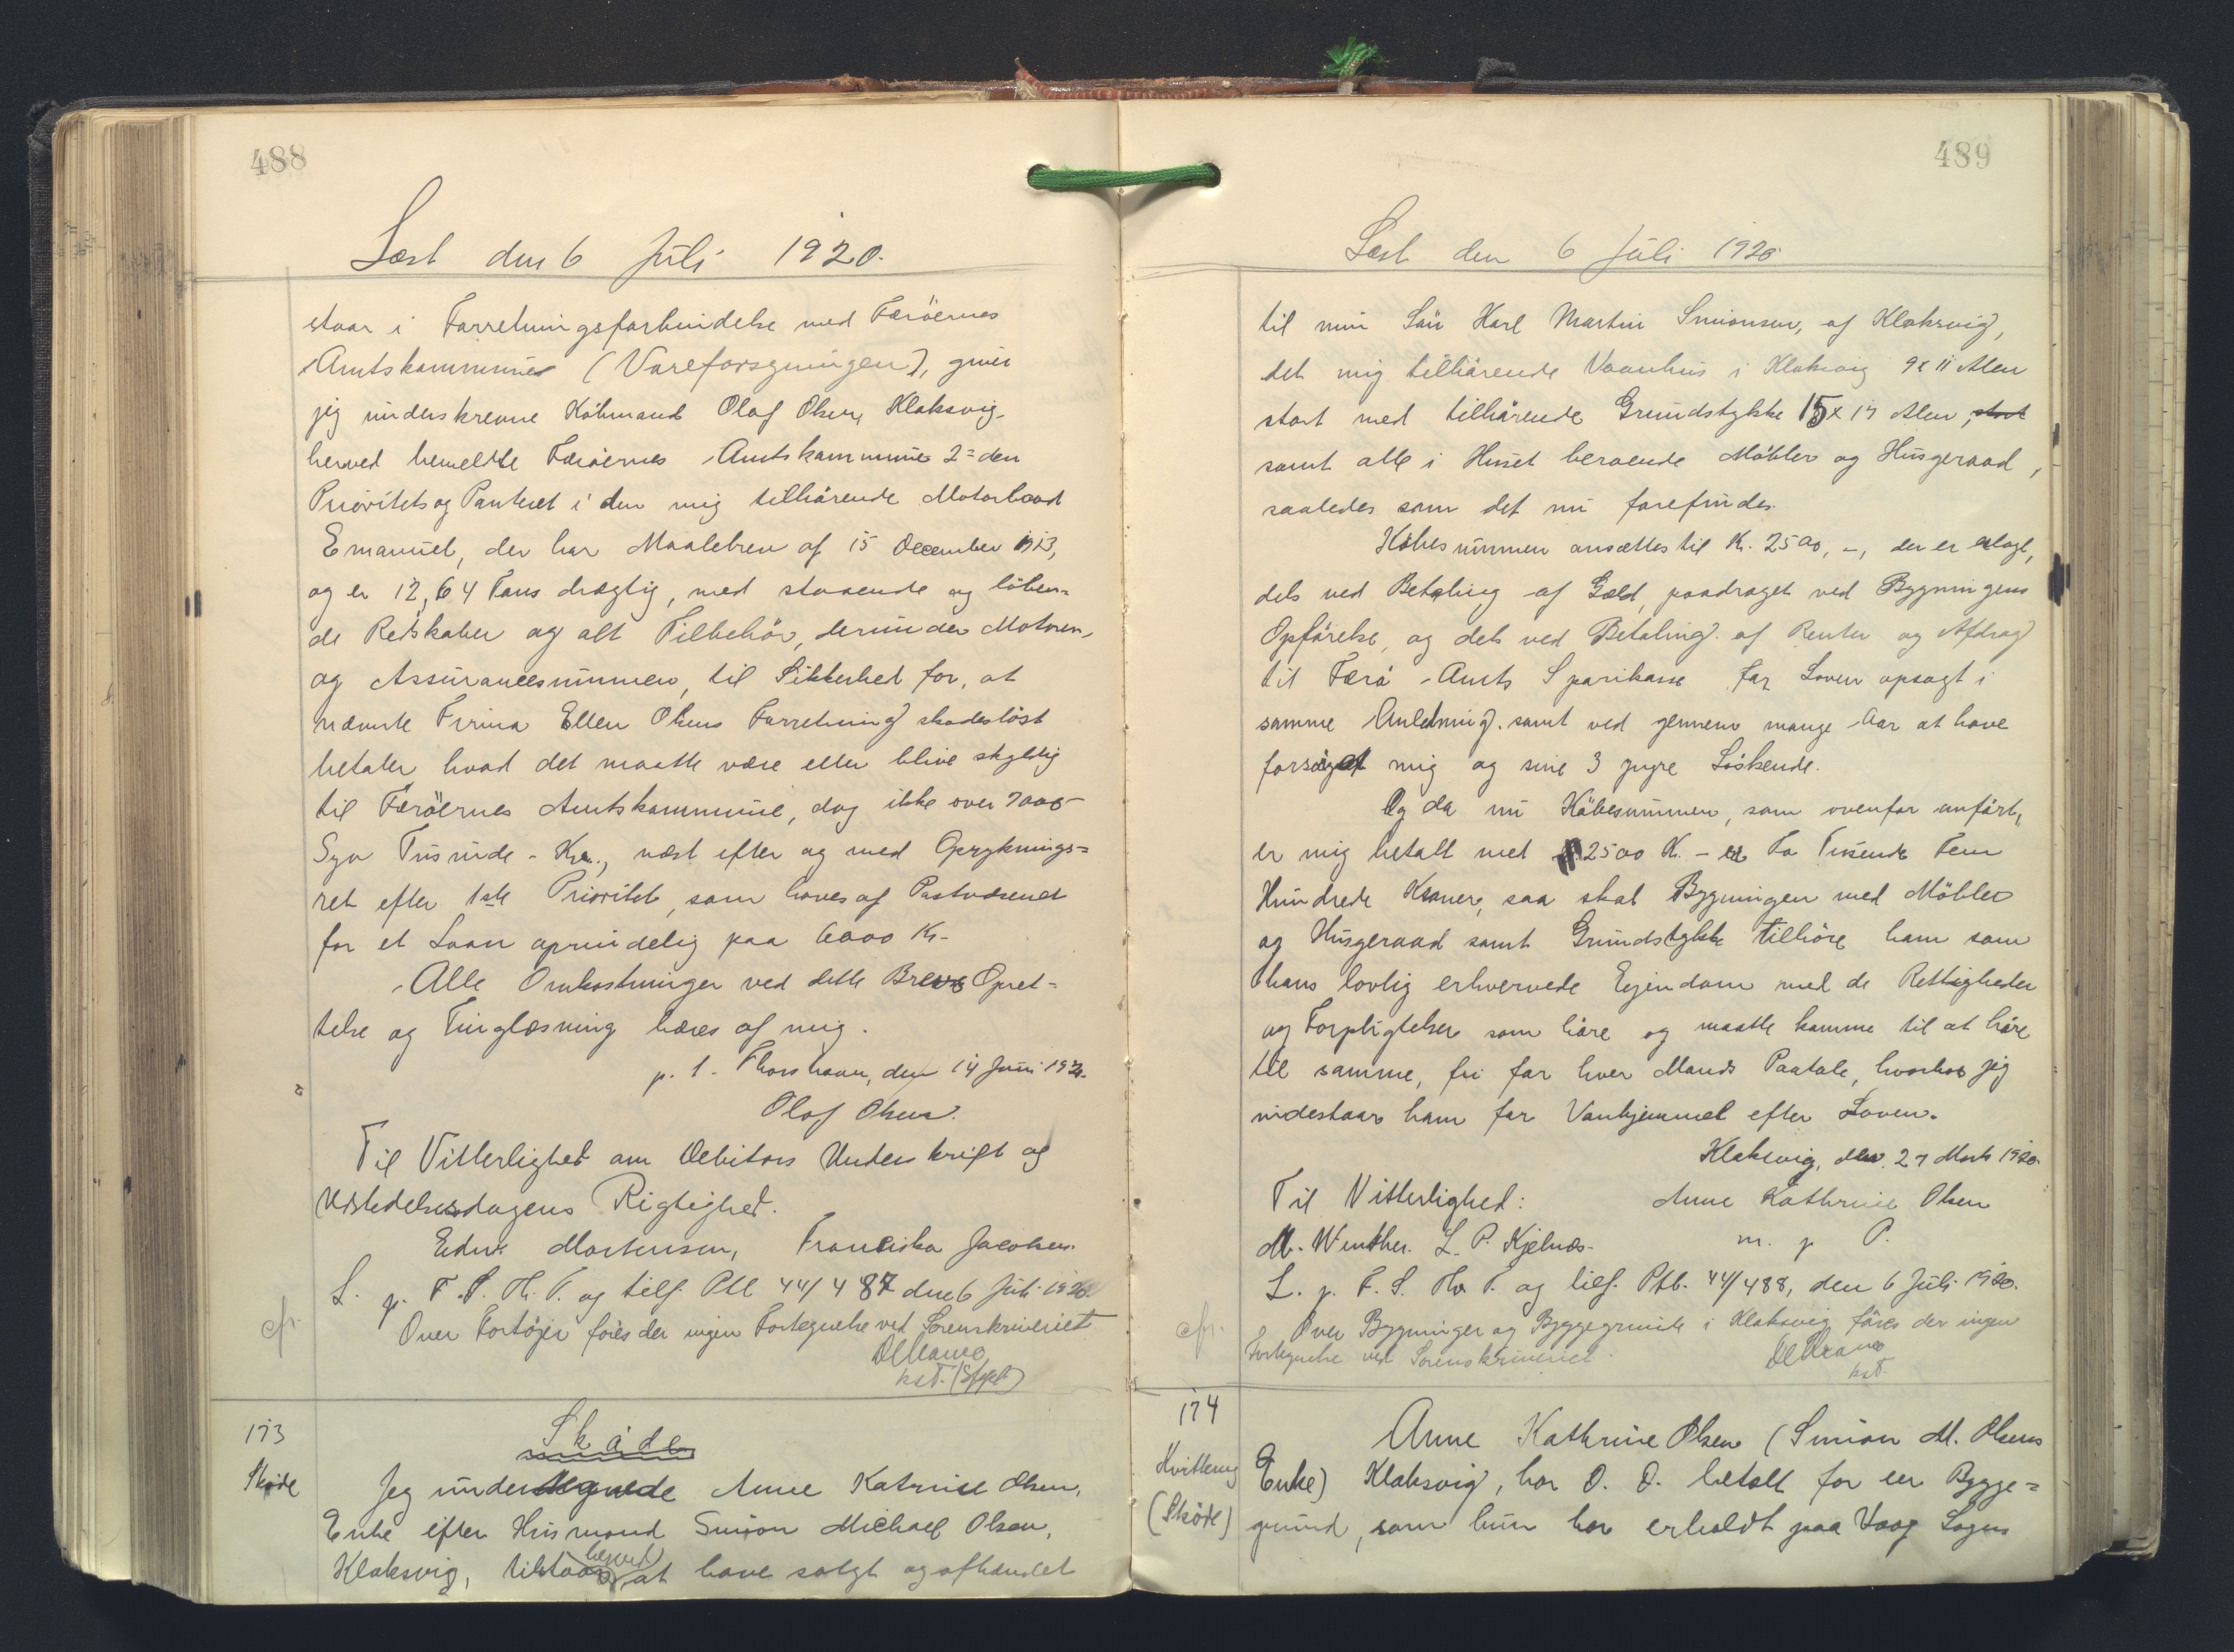 488
Læst den 6 Juli 1920.
staar i Forretningsforbindelse med Færöernes
Amtskommune (Vareforsyningen), giver
jeg underskrevne Köbmand Olaf Olsen, Klaksvig
herved bemeldte Færöernes Amtskommune 2=den
Prioritets og Panteret i den mig tilhörende Motorbaad
Emanuel, der har Maalebrev af 15 December 1913,
og er 12,64 Tons drægtig, med staaende og löben=
de Redskaber og alt Tilbehör, derunder Motoren,
og Assurancesummen, til Sikkerhed for, at
nævnte Firma Ellen Olsens Forretning skadeslöst
betaler hvad det maatte være eller blive skyldig
til Færöernes Amtskommune, dog ikke over 7000-
Syv Tusinde - Kr., næst efter og med Opryknings=
ret efter 1ste Prioritet, som haves af Postvæsenet
for et Laan oprindelig paa 6000 Kr-
Alle Omkostninger ved dette Brevs Opret=
telse og Tinglæsning bæres af mig.
p. t. Thorshavn, den 14 Juni 1920.
Olaf Olsen.
Til Vitterlighed om Debitors Underskrift og
Udstedelsesdagens Rigtighed.
Edw. Mortensen, Franciska Jacobsen.
L. p. F. S. Th. T. og tilf. Ptb 44/487 den 6 Juli 1920
cfr.
Over Fortöjer föres der ingen Fortegnelse ved Sorenskriveriet
kst.
173
Sköde
Sköde
Jeg undertegnede Anne Katrine Olsen,
Enke efter Husmand Simon Michael Olsen,
Klaksvig, tilstaar herved at have solgt og afhændet
489
Læst den 6 Juli 1920
til min Sön Karl Martin Simonsen, af Klaksvig,
det mig tilhörende Vaanhus i Klaksvig 9 x 11 Alen
stort med tilhörende Grundstykke 15 x 17 Alen, stort
samt alle i Huset beroende Möbler og Husgeraad,
saaledes som det nu forefindes.
Köbesummen ansættes til Kr. 2500,-, der er erlagt,
dels ved Betaling af Gæld, paadraget ved Bygningens
Opförelse, og dels ved Betaling af Renter og Afdrag
til Færö Amts Sparikasse for Loven opsagt i
samme Anledning. samt ved gennem mange Aar at have
forsörget mig og sine 3 yngre Söskende.
Og da nu Köbesummen, som ovenfor anfört,
er mig betalt med 2500 Kr. - er To Tusende Fem
Hundrede Kroner, saa skal Bygningen med Möbler
og Husgeraad samt Grundstykke tilhöre ham som
hans lovlig erhvervede Ejendom med de Rettigheder
og Forpligtelser som höre og maatte komme til at höre
til samme, fri for hver Mands Paatale, hvorhos jeg
indestaar ham for Vanhjemmel efter Loven.
Klaksvig, den 27 Marts 1920.
Til Vitterlighed: Anne Kathrine Olsen
M. Winther. L. P. Kjelnæs. m. p P.
L. p. F. S. Th. T. og tilf. Ptb. 44/488, den 6 Juli 1920.
cfr.
Over Bygninger og Byggegrunde i Klaksvig föres der ingen
Fortegnelse ved Sorenskriveriet.
kst.
174
Kvittering
(Sköde)
Anne Kathrine Olsen (Simon M. Olsens
Enke) Klaksvig, har D. D. betalt for en Bygge=
grund, som hun har erholdt paa Vaag Sogns